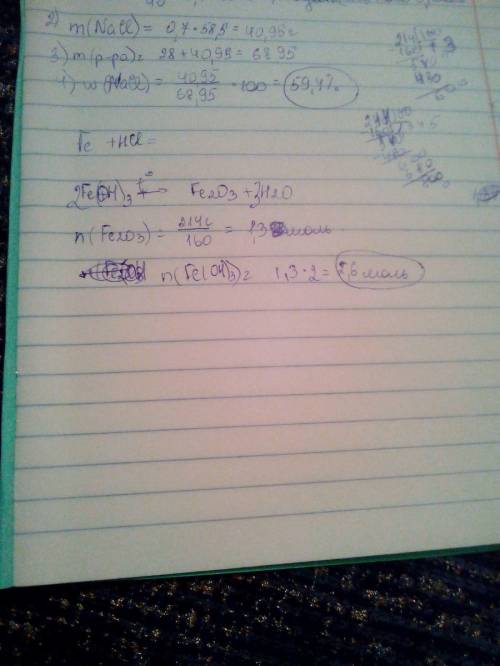 2) m(NaCl) = 0,7 · 58,5 = 40,95г
3) m(р-ра) = 28 + 40,95 = 68,95
4) w(NaCl) = 40,95/68,95 · 100 = 59,4%
Fe + HCl =
2Fe(OH)3 t° → Fe2O3 + 3H2O
n(Fe2O3) = 214г/160 = 1,3 моль
n(Fe(OH)3) = 1,3 · 2 = 2,6 моль